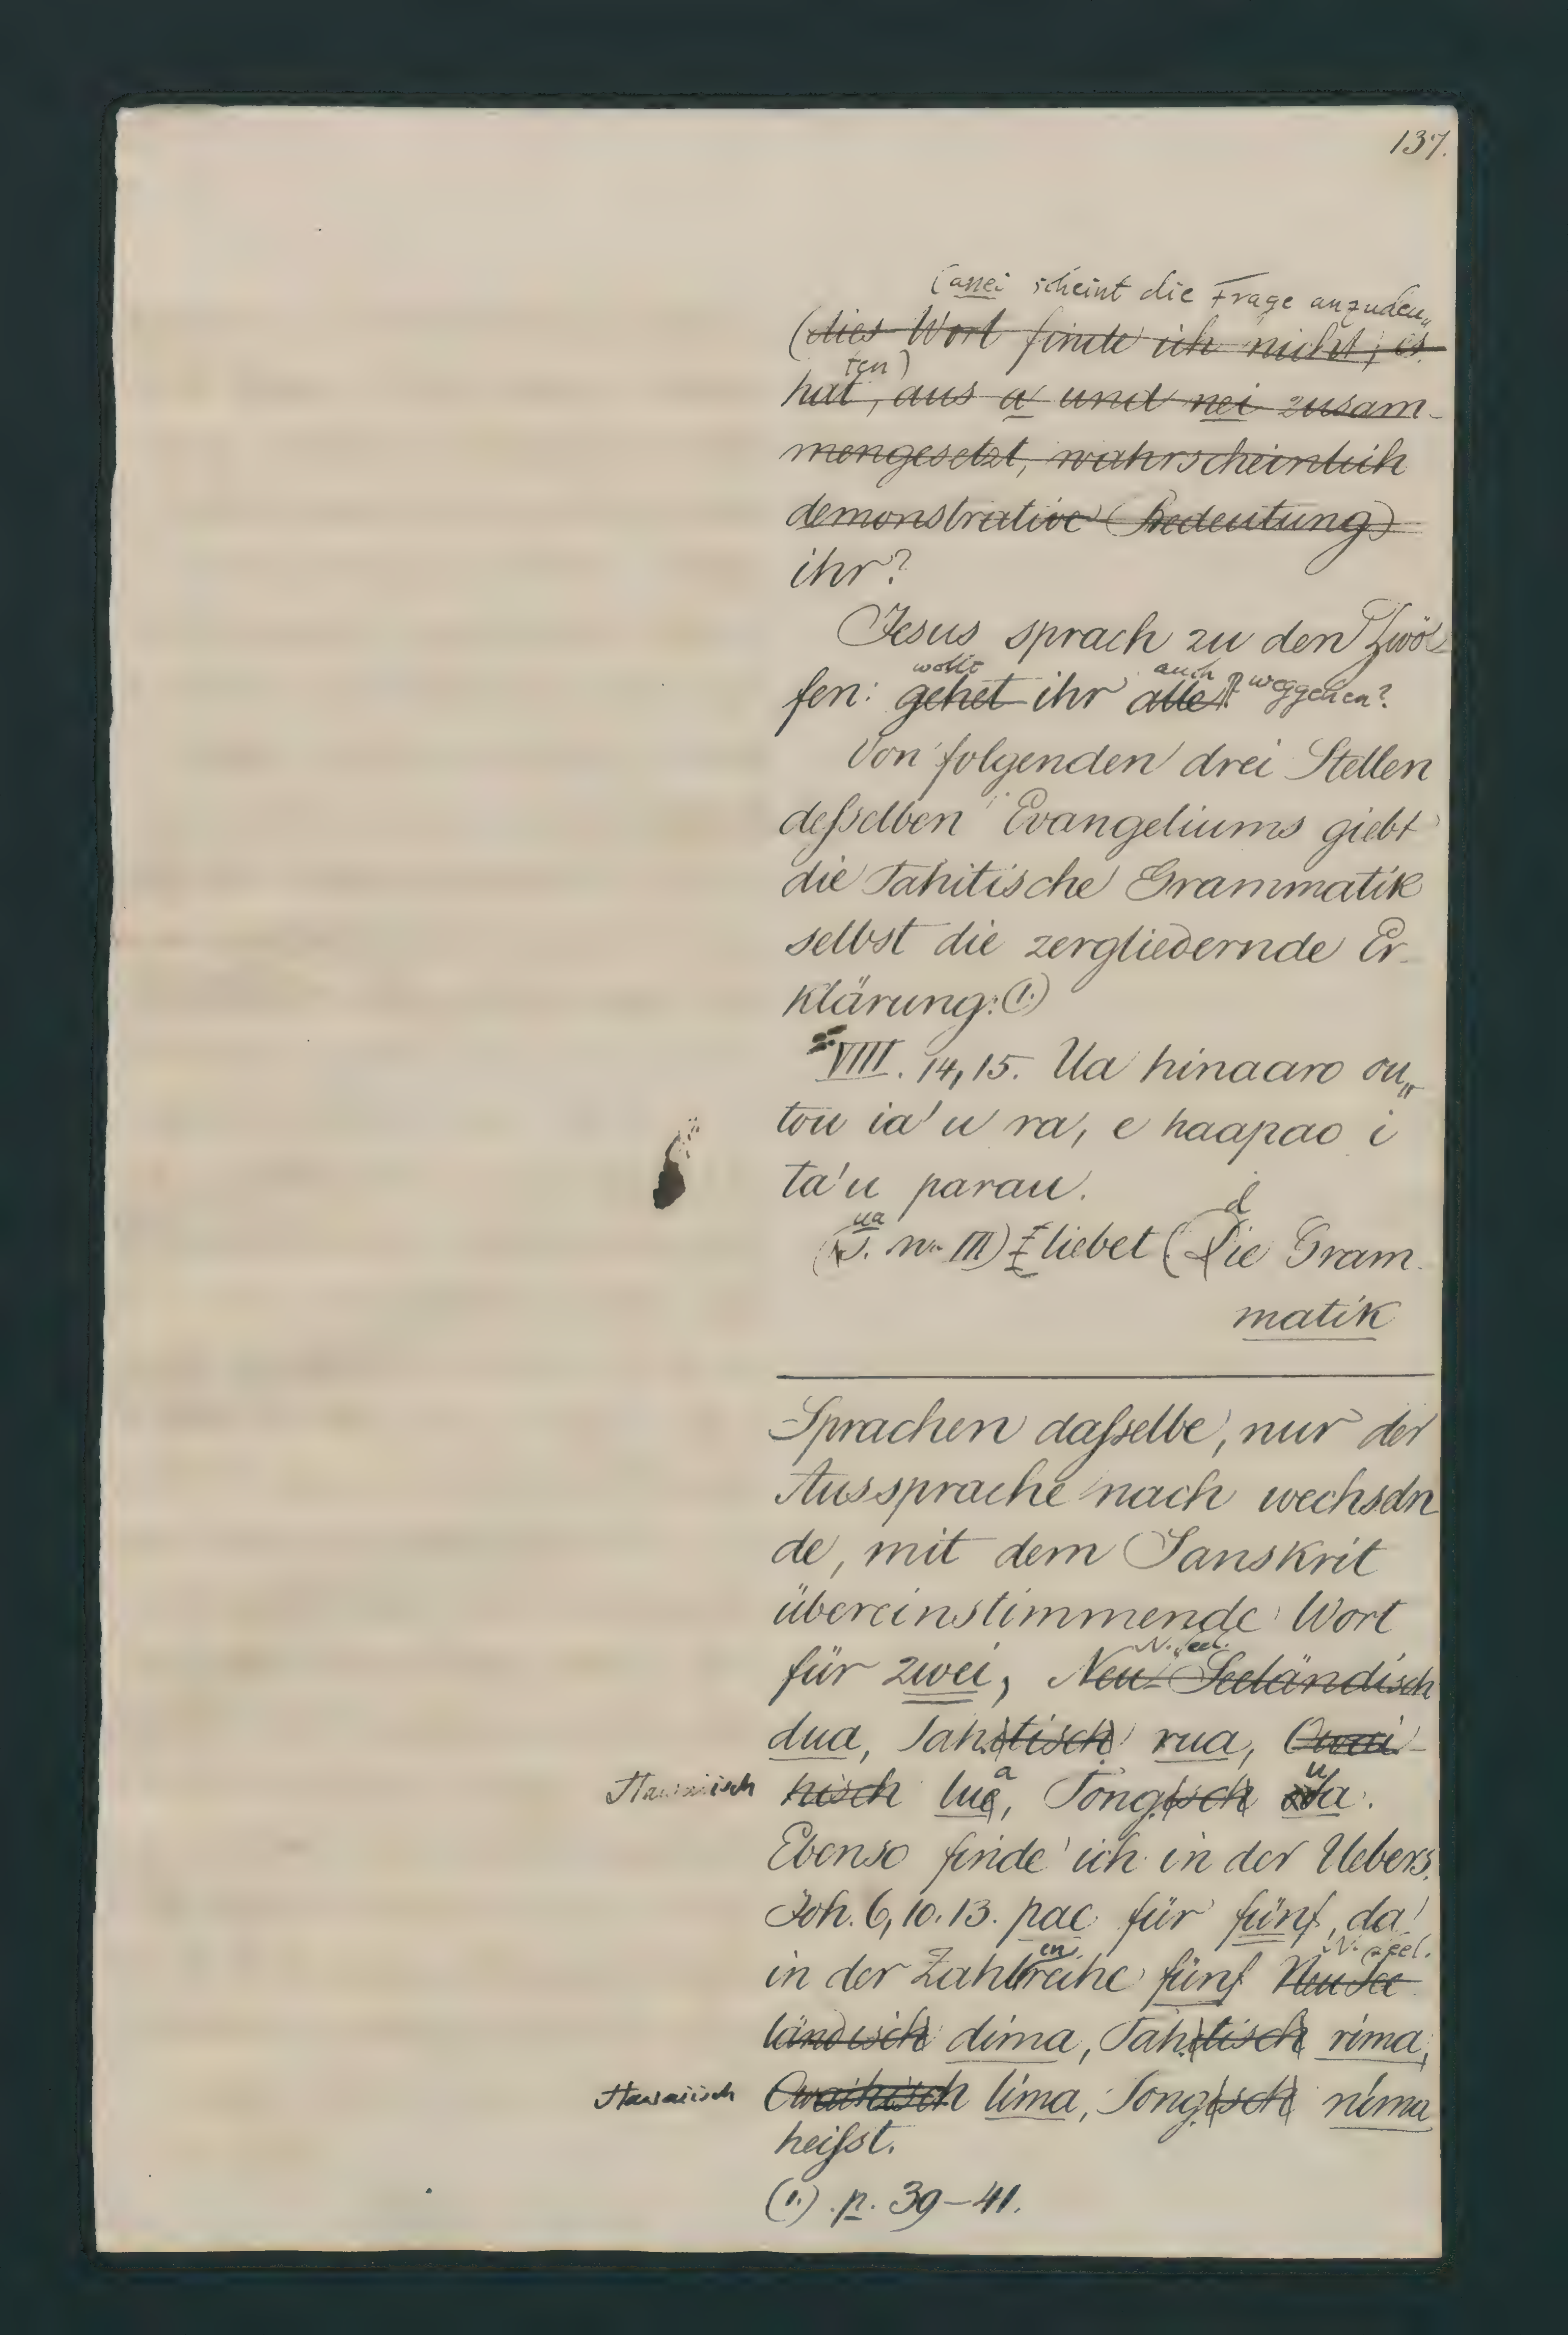 137.
(anei scheint die Frage anzudeu„
(dies Wort finde ich nicht; es
ten)
hat, aus a und nei zusam-
mengesetzt, wahrscheinlich
demonstrative Bedeutung)
ihr?
Jesus sprach zu den Zwöl-
wollt auch weggehen?
fen: gehet ihr alle?
Von folgenden drei Stellen
deſselben Evangeliums giebt
die Tahitische Grammatik
selbst die zergliedernde Er-
klärung: (1.)
VIII. 14, 15. Ua hinaaro ou„
tou ia'u ra, e haapao i
ta'u parau.
ua d
nr. III) liebet (Die Gram-
matik
Sprachen daſselbe, nur der
Aussprache nach wechseln
de, mit dem Sanskrit
übereinstimmende Wort
N. Seel.
für zwei, Neu-Seeländisch
dua, Tahitisch rua, Owai-
a u
Hawaiisch hisch lue, Tongisch a.
Ebenso finde ich in der Uebers.
Joh. 6, 10. 13. pae für fünf, da
en N. Seel.
in der Zahlreihe fünf Neu See
ländisch dima, Tahitisch rima,
Hawaiisch Owaihisch lima, Tongisch nima
heiſst.
(1.) p. 39-41.